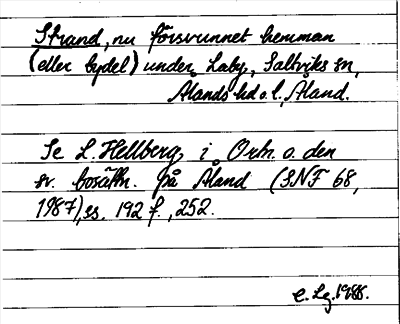 Strand, nu försvunnet hemman
(eller bydel) under Laby, Saltviks sn,
Ålands hd o. l, Åland.
Se L. Hellberg, i Ortn. o. den
sv. bosättn. på Åland (SNF 68,
1987), ss. 192 f., 252.
C. Lg. 1988.